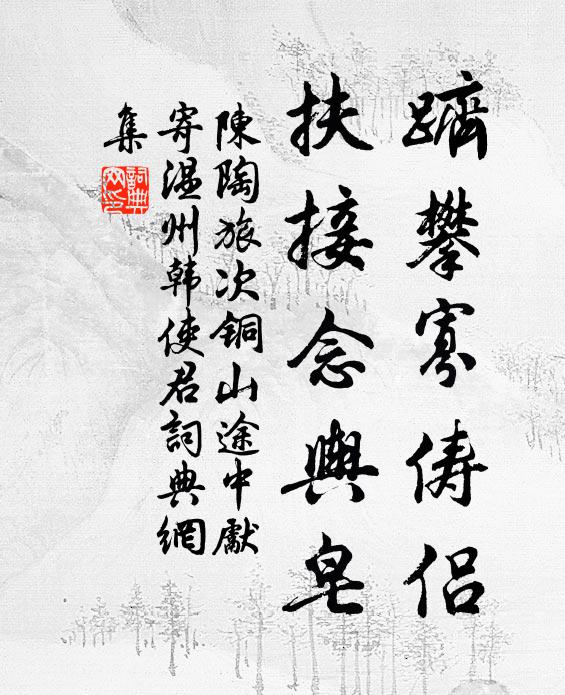 躋攀寡儔侶
扶接念輿皂
陳陶旅次铜山途中獻
寄温州韩使君詞典網
集
詞典
网印